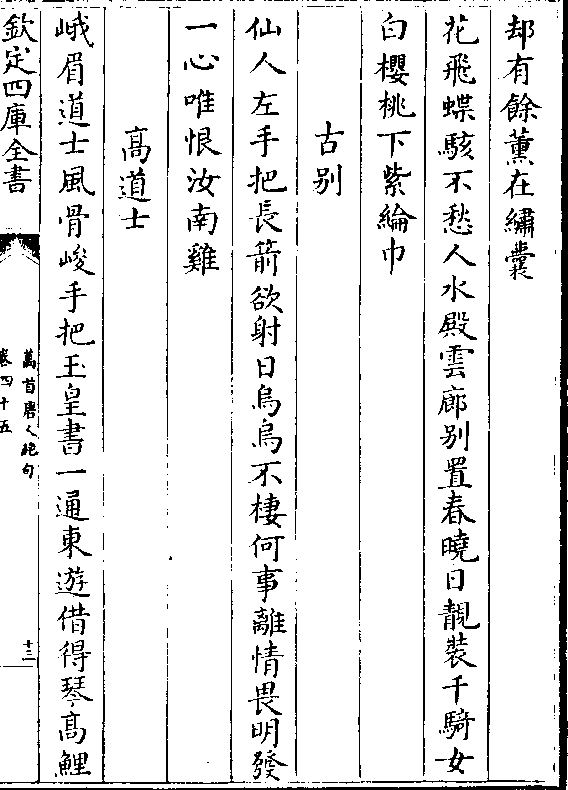 却有餘薫在繡囊
花飛蝶駭不愁人水殿雲廊别置春曉日靚裝千騎女
白櫻桃下紫綸巾
古别
仙人左手把長箭欲射日烏烏不棲何事離情畏明發
一心唯恨汝南雞
髙道士
峨眉道士風骨峻手把玉皇書一通東遊借得琴髙鯉
欽定四庫全書
萬首唐人絶句
卷四十五
十三